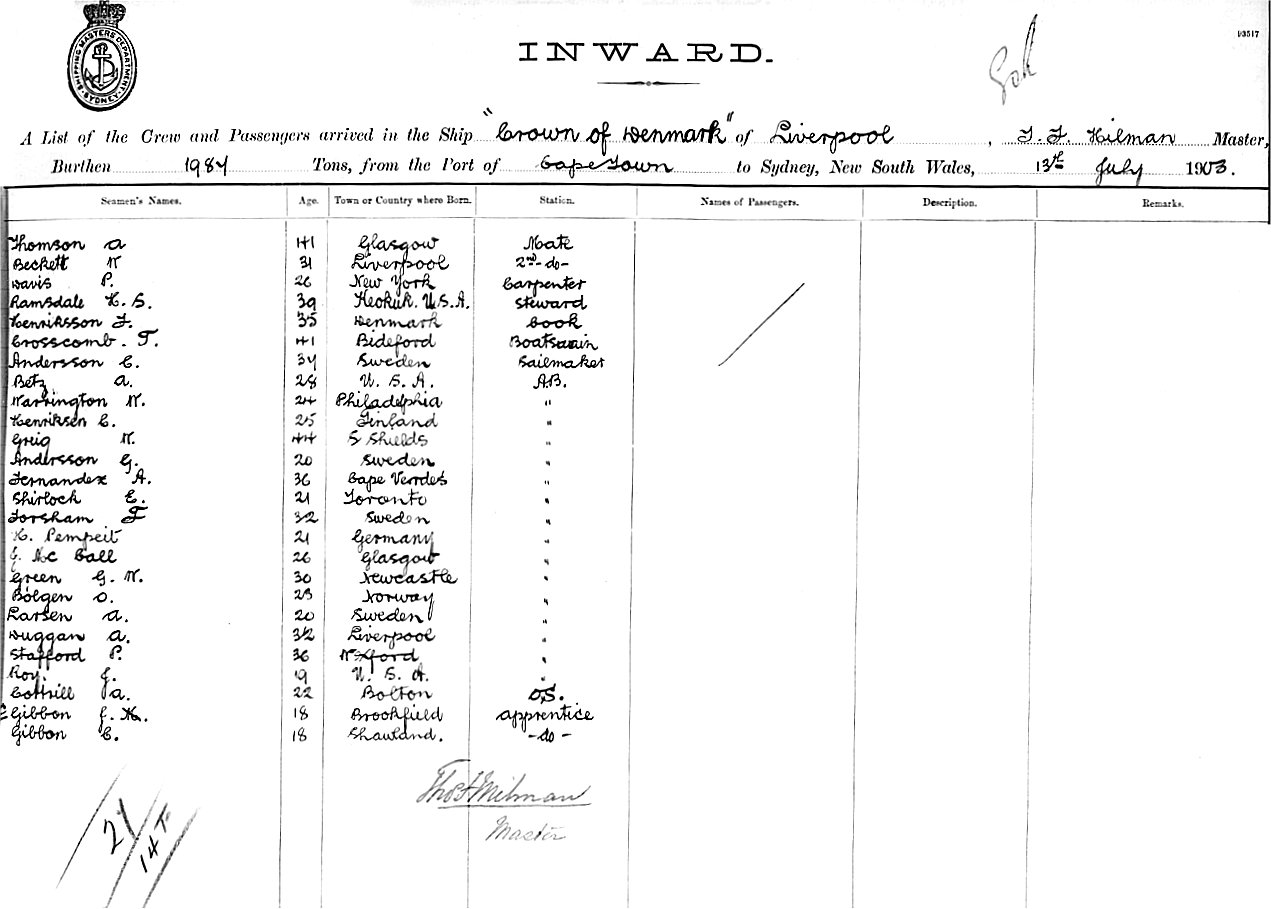 SHIPPING MASTERS DEPARTMENT SYDNEY
93517
INWARD.
A List of the Crew and Passengers arrived in the Ship "Crown of Denmark" of Liverpool, T. F. Hilman Master,
Burthen 1984 Tons, from the Port of Cape Town to Sydney, New South Wales, 13th July 1903.
Seamen's Names. Age. Town or Country where Born. Station. Names of Passengers. Description. Remarks.
Thomson A 41 Glasgow Mate
Beckett W 31 Liverpool 2nd -do-
Davis P. 26 New York Carpenter
Ramsdale H. S. 39 Keokuk. U.S.A. Steward
Henriksson F. 35 Denmark Cook
Crosscomb. T. 41 Bideford Boatswain
Andersson C. 34 Sweden Sailmaker
Betz A. 28 U. S. A. A.B.
Warrington W. 24 Philadelphia "
Henriksen C. 25 Finland "
Greig W. 44 S Shields "
Andersson G. 20 Sweden "
Fernandez A. 36 Cape Verdes "
Shirlock E. 21 Toronto "
Forsham F 32 Sweden "
H. Pempeit 21 Germany "
J. Mc Call 26 Glasgow "
Green G. W. 30 Newcastle "
Bolgen O. 23 Norway "
Larsen A. 20 Sweden "
Duggan A. 32 Liverpool "
Stafford P. 36 Wexford "
Roy. J. 19 U. S. A. "
Cottrill A. 22 Bolton O.S.
Gibbon J. H. 18 Brookfield apprentice
Gibbon C. 18 Shawland. -do-
Thos F Milman
Master
14